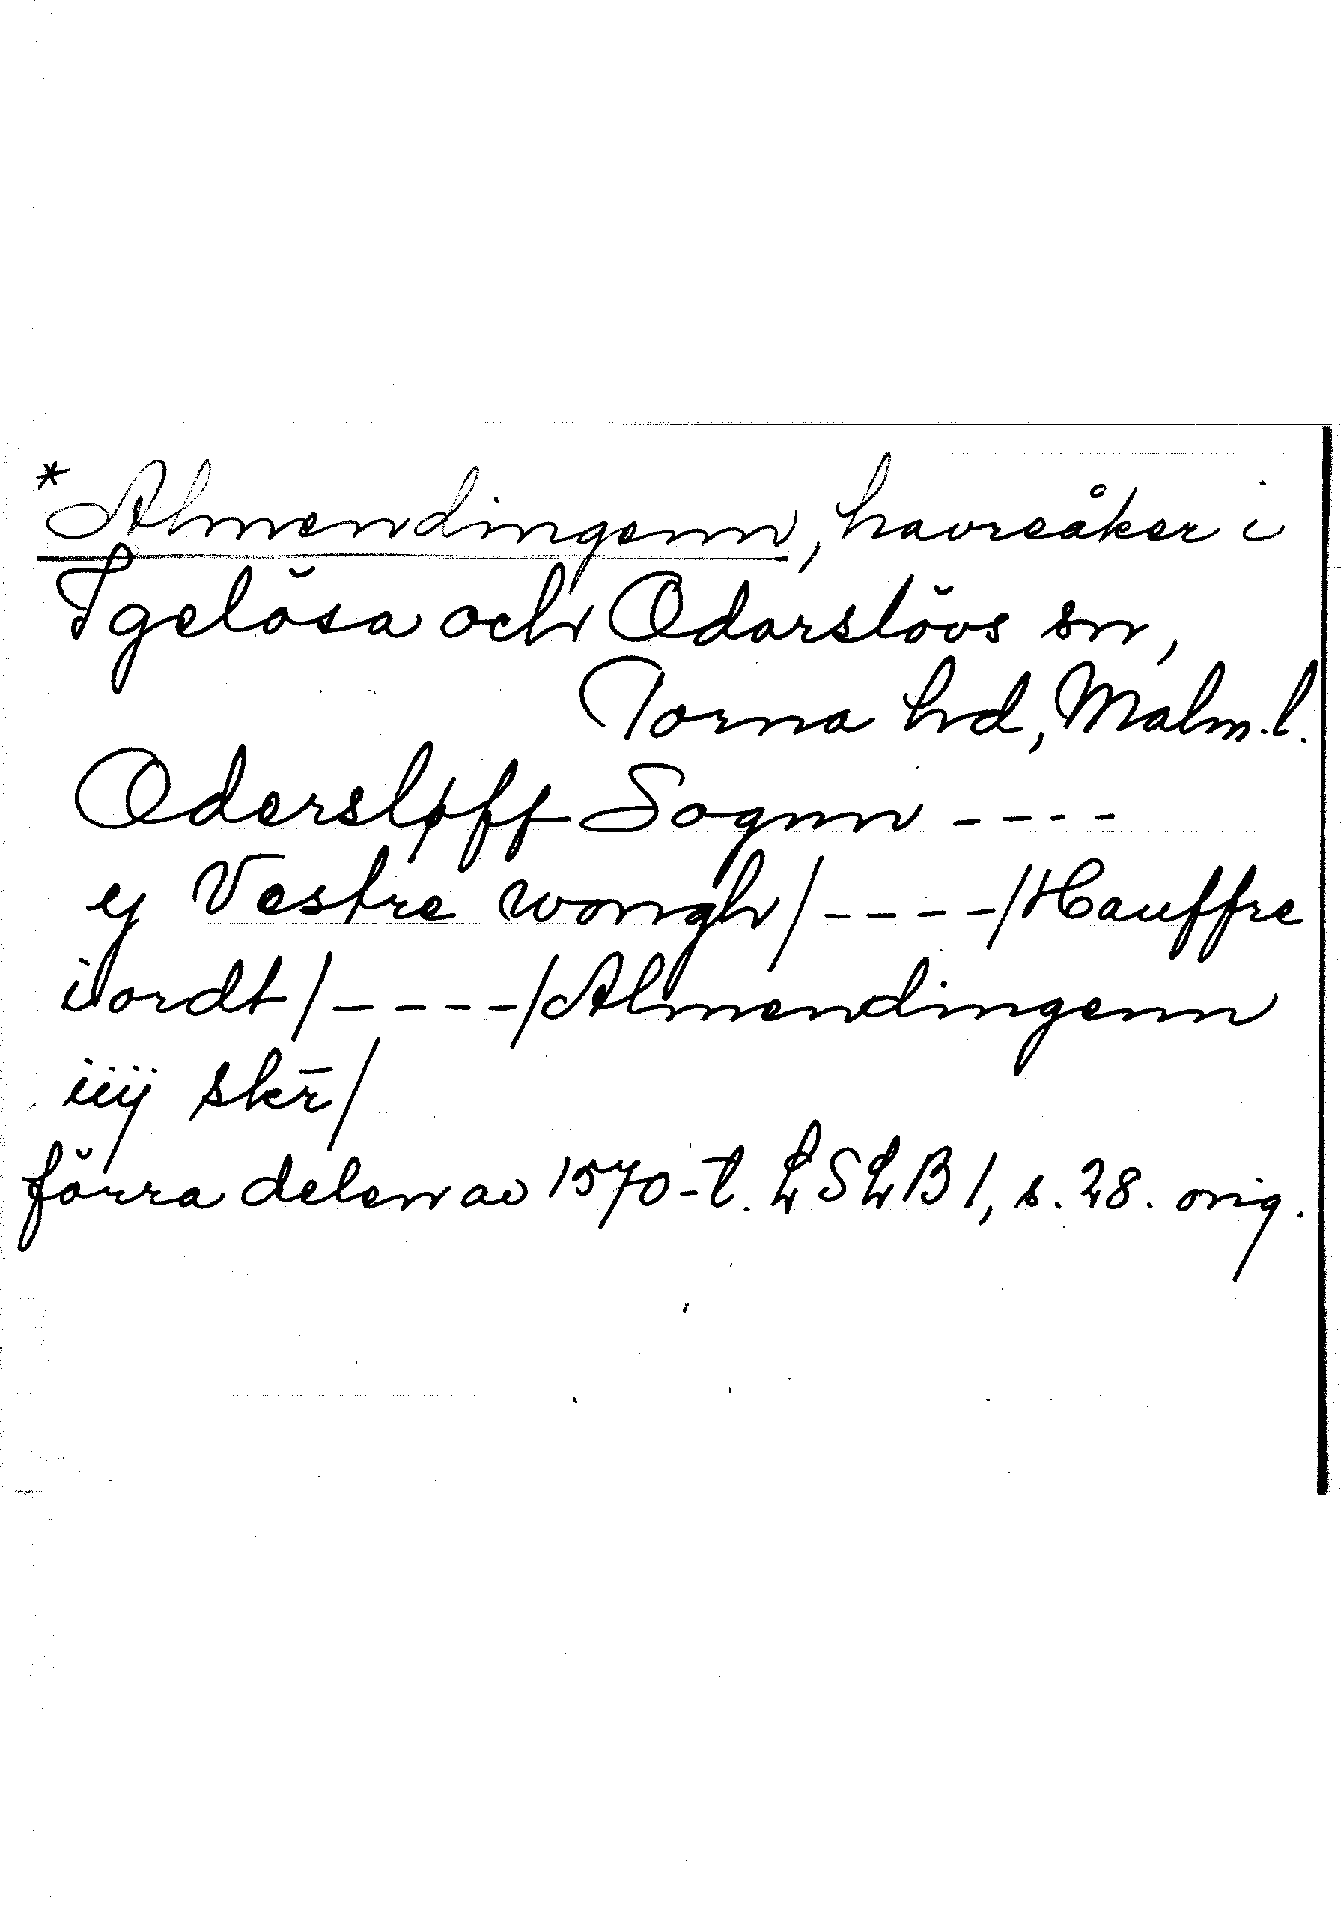 *Almendingenn, havreåker i
Igelösa och Odarslövs sn,
Torna hd, Malm.l.
Odersløff Sognn ----
ij Vestre wongh/----/Hauffre
iordt/----/Almendingenn
iiij skr̄/
förra delen av 1570-t. LSLB I, s. 28. orig.